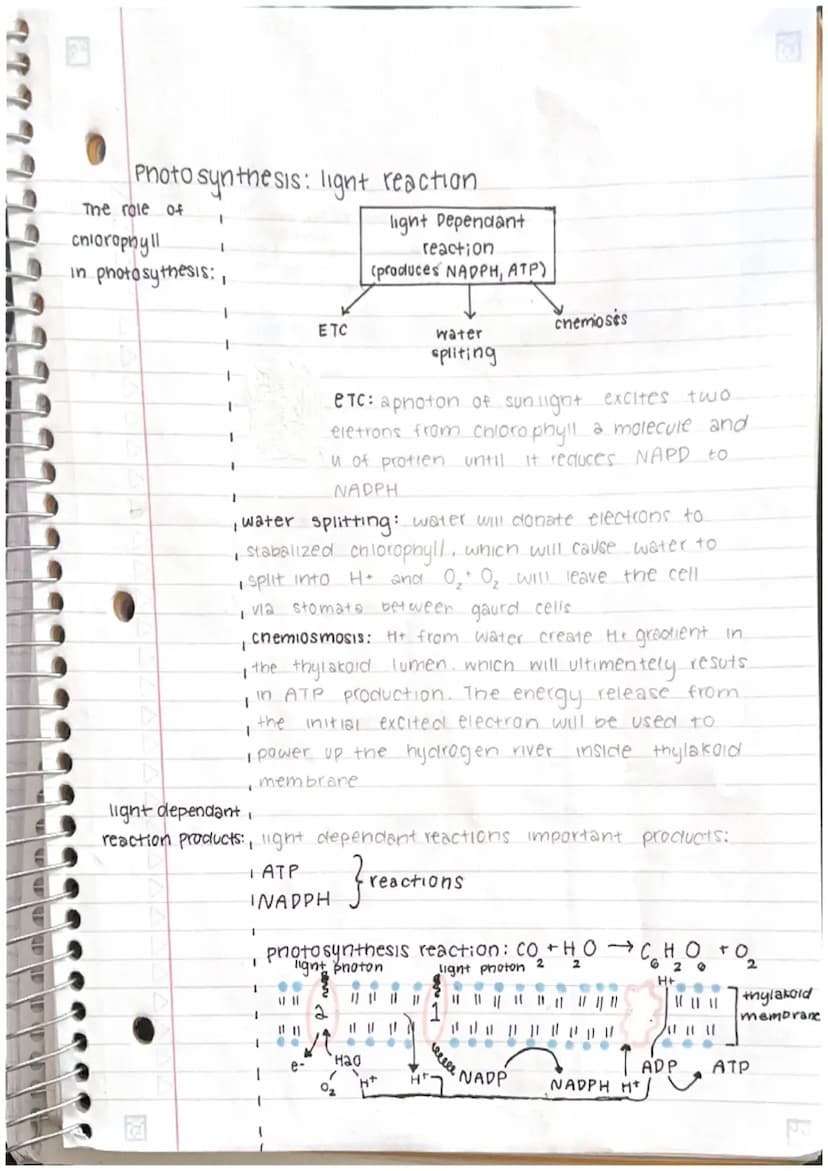 Photosynthesis: light reaction
The role of
chlorophyll
in photosythesis:
light Dependant
reaction
(produces NADPH, ATP)
ETC
water
spliting
chemiosis
ETC: a photon of sunlight excites two
eletrons from chlorophyll a molecule and
u of protien until it reduces NAPD to
NADPH
water splitting: water will donate electrons to
stabalized chlorophyll, which will cause water to
split into H+ and O₂. O₂ will leave the cell
via stomata between gaurd cells
chemiosmosis: H+ from water create H+ gradient in
the thylakoid lumen. which will ultimentely resuts
in ATP production. The energy release from
the initial excited electron will be used to
power up the hydrogen river inside thylakoid
membrane
light dependant
reaction products:
light dependant reactions important products:
ATP
NADPH
reactions
photosynthesis reaction: CO₂ + H₂O → C₆H₂O₆ + O₂
light photon
light photon
H+
2
1
thylakoid
membrane
e-
H2O
O₂
H+
H+
NADP
NADPH
H+
ADP
ATP